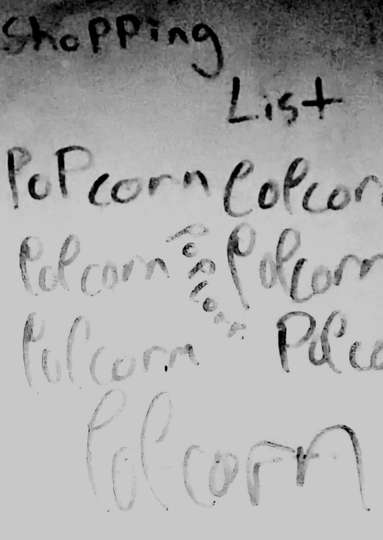 Shopping
List
PoPcorn Popcor
Popcorn Popcorn Popcorn
Popcorn Popco
Popcorn